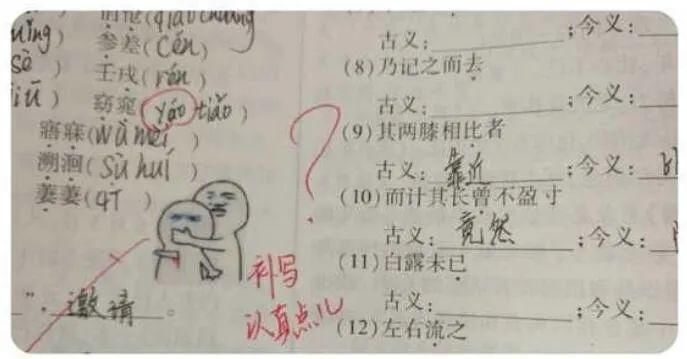 悄怆(qiǎo chuàng
参差(cēn)
sè)
壬戌(rén)
窈窕(yáo tiǎo)
寤寐(wù mèi)
溯洄(sù huí)
萋萋(qī)
补写
认真点儿
”。邀请。
古义:;今义:
(8)乃记之而去
古义:;今义:
(9)其两膝相比者
古义:靠近;今义:
(10)而计其长曾不盈寸
古义:竟然;今义:
(11)白露未已
古义:;今义:
(12)左右流之